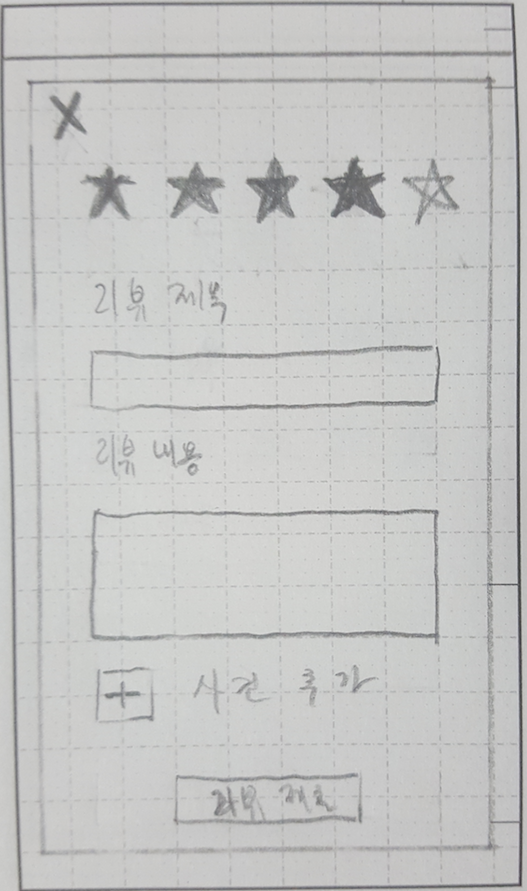 X
리뷰 제목
리뷰 내용
+ 사진 추가
리뷰 제출